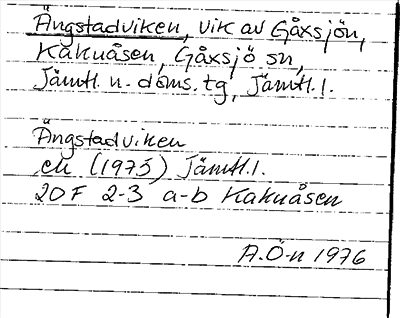 Ängstadviken, vik av Gåxsjön,
Kakuåsen, Gåxsjö sn,
Jämtl. n. doms. tg, Jämtl. l.
Ängstadviken
ek (1973) Jämtl. l.
20F 2-3 a-b Kakuåsen
A.Ö-n 1976